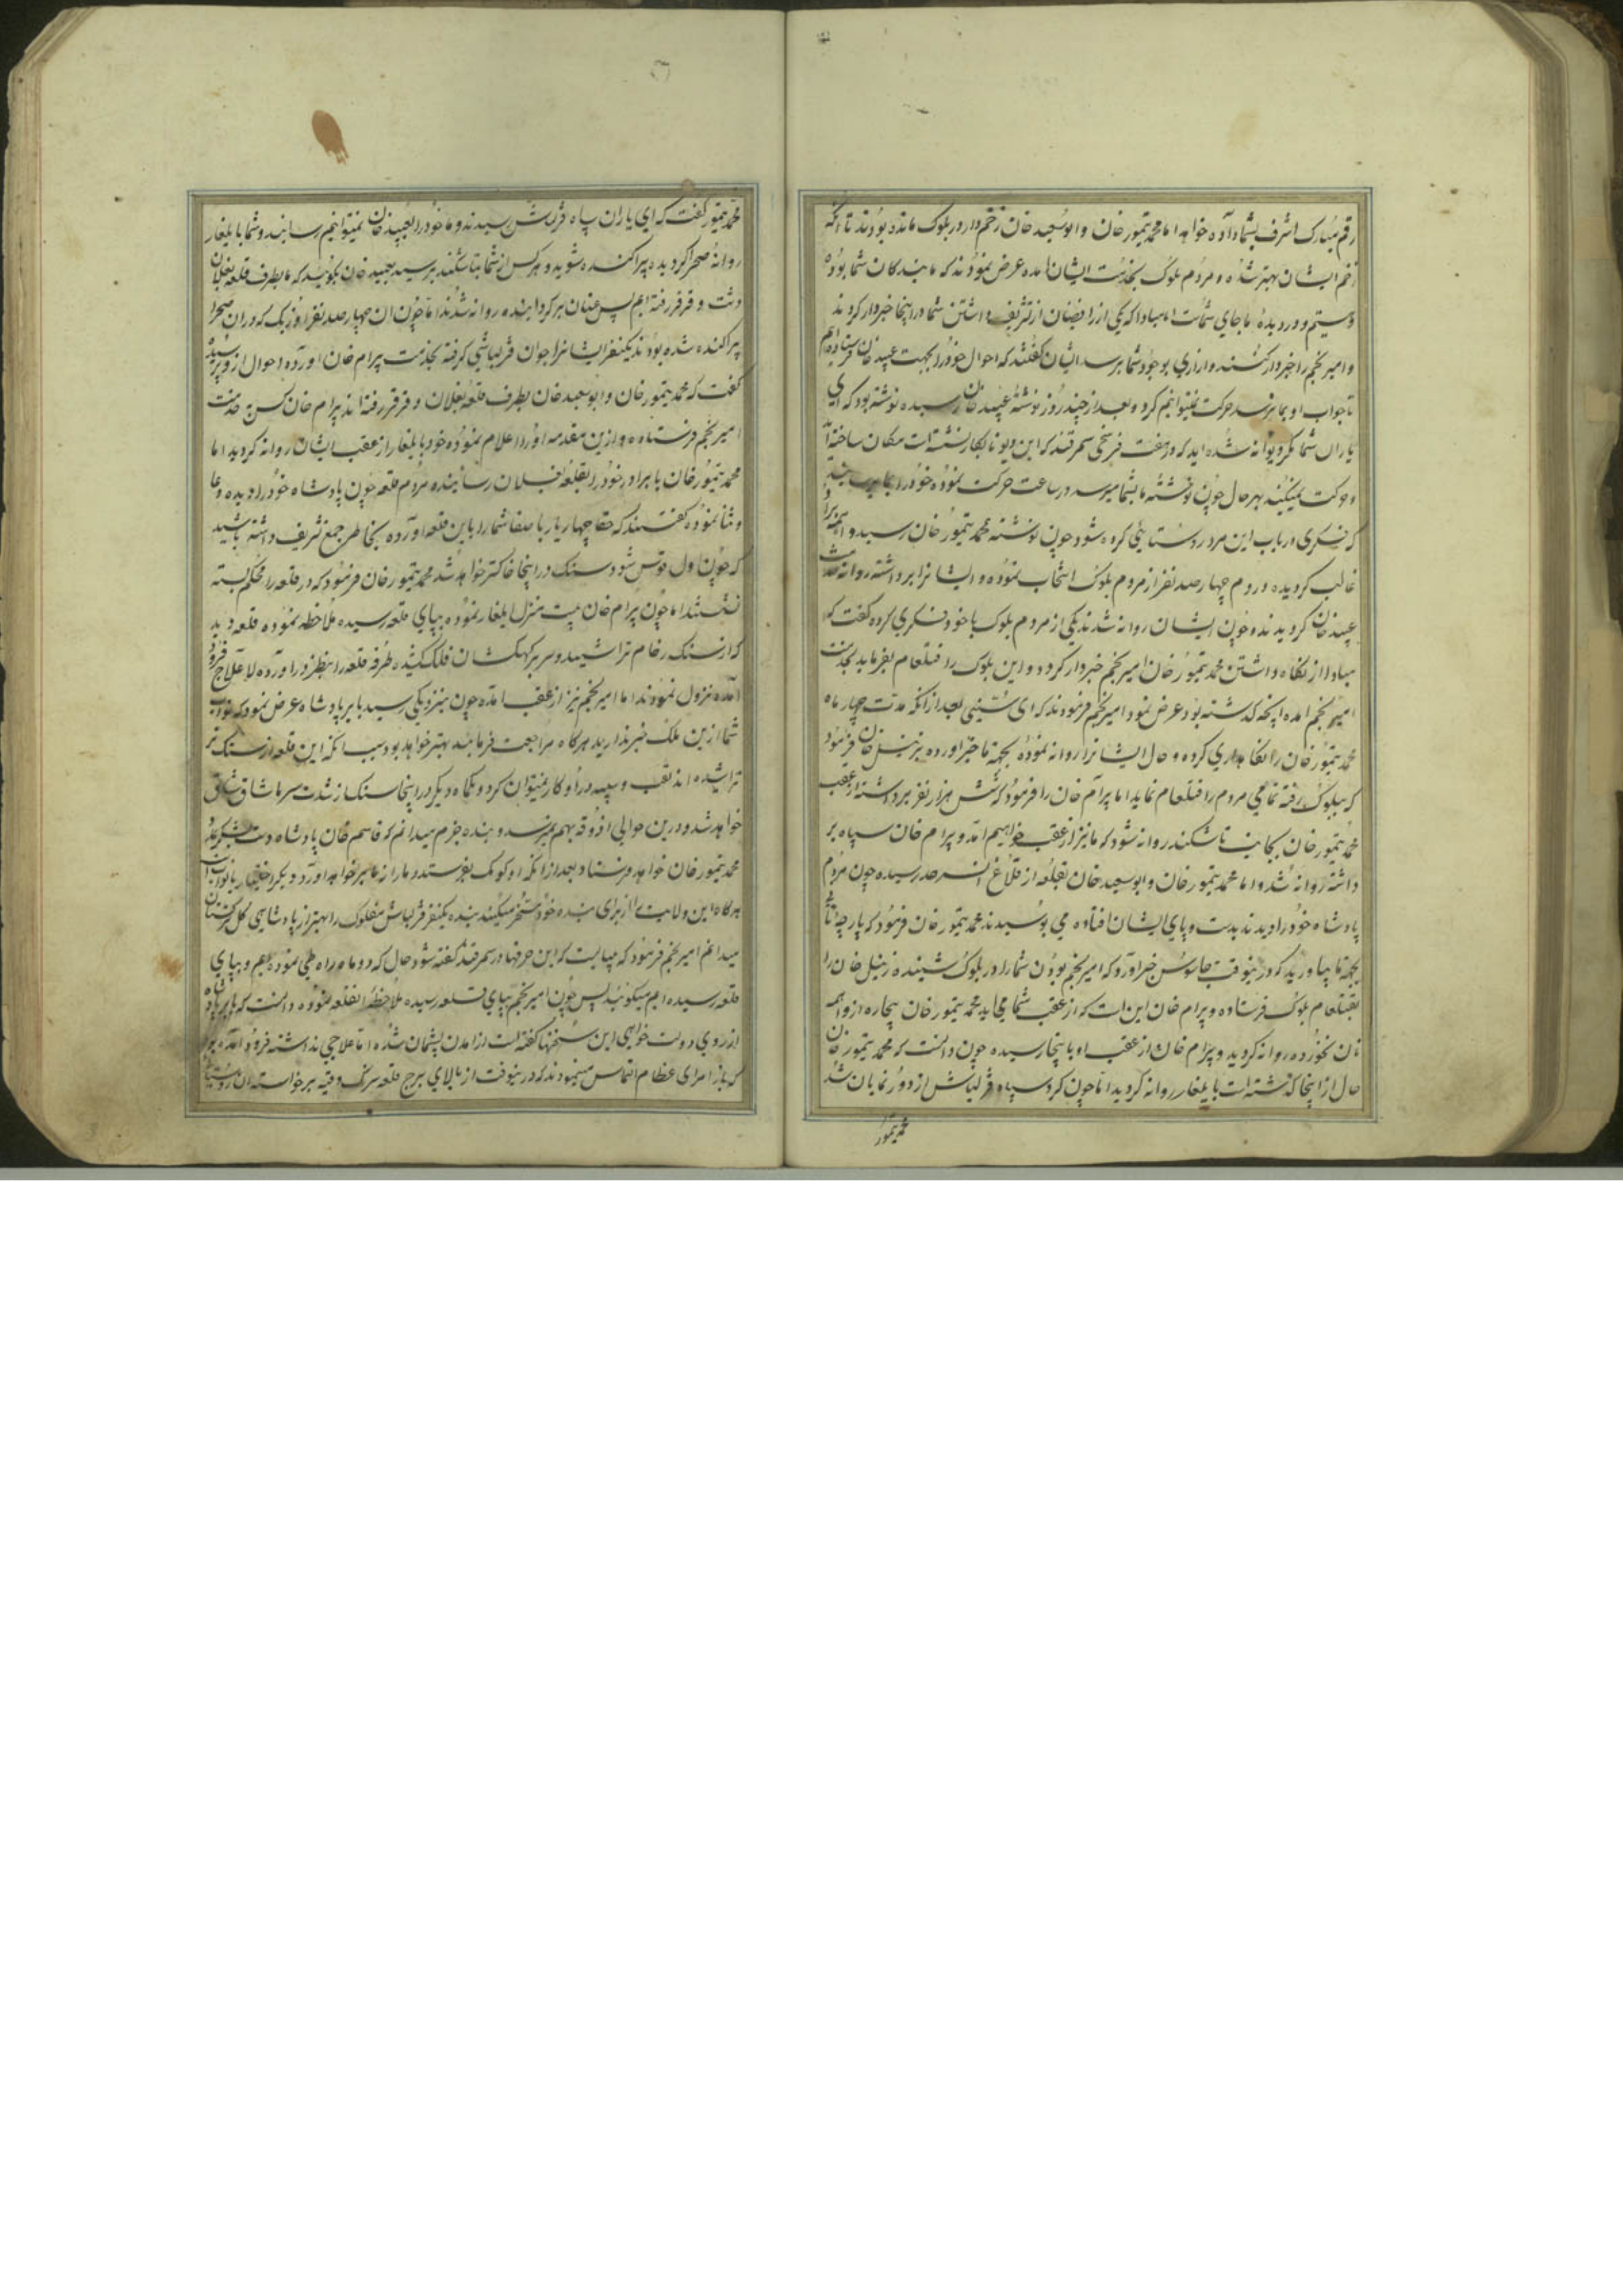 رقم مبارک اشرف بشما داده خواهد اما محمد تیمور خان و ابوسعید خان زخم دار در بلوک مانده بودند تا انکه
زخم ایشان بهتر شده و مردم بلوک بخدمت ایشان امده عرض نمودند که ما بندکان شما بوده
و ستیم و دو دیده ما جای شماست اما مبادا که یکی از رافضیان از تشریف داشتن شما در اینجا خبردار کردند
و امیر نجم را خبردار کنند و ازاری بوجود شما برسد ایشان کفتند که احوال خود را بجهت عبید خان فرستاده ایم
تا جواب او بما نرسد حرکت نمیتوانیم کرد و بعد از چند روز نوشته عبید خان رسیده نوشته بود که ای
یاران شما مکر دیوانه شده اید که در هفت فرسخی سمرقند که این دیو نابکار نشسته است مکان ساخته اید
و حرکت نمیکنید بهر حال چون نوشته ما بشما میرسد در ساعت حرکت نموده خود را بما برسانید
که فکری در باب این مرد روستائی کرده شود چون نوشته محمد تیمور خان رسید و
غالب کردیده و از مردم چهار صد نفر از مردم بلوک انتخاب نموده و ایشانرا برداشته روانه خدمت
عبید خان کردیدند و چون ایشان روانه شدند یکی از مردم بلوک با خود فکری کرده کفت که
مبادا از نکاه داشتن محمد تیمور خان امیر نجم خبردار کردد و این بلوک را قتلعام بفرماید بخدمت
امیر نجم امده انچه کذشته بود عرض نمود امیر نجم فرمودند که ای سنی بعد از انکه مدت چهار ماه
محمد تیمور خان را نکاهداری کرده و حال ایشانرا روانه نموده بجهة ما خبر اورده زینل خان فرمود
که ببلوک رفته تمامی مردم را قتلعام نماید اما بیرام خان را فرمود که شش هزار نفر برداشته از عقب
محمد تیمور خان بجانب تاشکند روانه شود که ما نیز از عقب خواهیم امد و بیرام خان سپاه بر
داشته روانه شد و اما محمد تیمور خان و ابوسعید خان بقلعه از قلاع ان سرحد رسیده چون مردم
پادشاه خود را دیدند بدست و پای ایشان افتاده می بوسیدند محمد تیمور خان فرمود که پارچه نانی
بجهة ما بیاورید که در نیوقت جاسوس خبر اورد که امیر نجم بودن شما را در بلوک شنیده زینل خان را
بقتلعام بلوک فرستاده و بیرام خان این است که از عقب شما می اید محمد تیمور خان بیچاره از واهمه
نان نخورده روانه کردید و بیرام خان از عقب او باینجا رسیده چون دانست که محمد تیمور خان
حال از اینجا کذشته است بایلغار روانه کردید اما چون کرد سپاه قزلباش از دور نمایان شد
محمد تیمور
محمد تیمور کفت که ای یاران سپاه قزلباش رسیدند و ما خود را بعبید خان نمیتوانیم رسانید و شما بایلغار
روانه صحرا کردیده پراکنده شوید و هر کس از شما بتاشکند برسد بعبید خان بکوئید که ما بطرف قلعه بغلان
دشت و قرقر رفته ایم پس عنان برکردانیده روانه شدند اما چون ان چهار صد نفر اوزبک که دران صحرا
پراکنده شده بودند یکنفر ایشانرا جوان قزلباشی کرفته بخدمت بیرام خان اورده احوال از و پرسیده
کفت که محمد تیمور خان و ابوسعید خان بطرف قلعه بغلان و قرقر رفته اند بیرام خان کس بخدمت
امیر نجم فرستاده و ازین مقدمه او را اعلام نموده خود بایلغار از عقب ایشان روانه کردید اما
محمد تیمور خان با برادر خود را بقلعه بغلان رسانیده مردم قلعه چون پادشاه خود را دیده دعا
و ثنا نموده کفتند که حقا چهار یار با صفا شما را باین قلعه اورده بخاطر جمع تشریف داشته باشید
که چون اول قوس شود سنک در اینجا خاکستر خواهد شد محمد تیمور خان فرمود که در قلعه را محکم بسته
نشستند اما چون بیرام خان بیست منزل ایلغار نموده بپای قلعه رسیده ملاحظه نموده قلعه دید
که از سنک رخام تراشیده و سر بر کهکشان فلک کشیده طرفه قلعه را بنظر در اورده لاعلاج فرود
امده نزول نمودند اما امیر نجم نیز از عقب امده چون بنزدیکی رسید بابر پادشاه عرض نمود که نواب
شما ازین ملک خبر ندارید هرکاه مراجعت فرمایند بهتر خواهد بود سبب انکه این قلعه از سنک
تراشیده اند نقب و سیبه در او کار نمیتوان کرد و یکماه دیکر در اینجا سنک از شدت سرما شاق شاق
خواهد شد و درین حوالی اذوقه بهم نمیرسد و بنده جزم میدانم که قاسم خان پادشاه دشت لشکر بمدد
محمد تیمور خان خواهد فرستاد بعد از انکه او کومک بفرستد دمار از ما بر خواهد اورد دیکر اختیار با نوابست
هرکاه این ولایت را از برای بنده خود مسخر میکنند بنده یکنفر قزلباش مفلوک را بهتر از پادشاهی کل ترکستان
میدانم امیر نجم فرمود که میبایست که این حرفها در سمرقند کفته شود حال که دو ماه راه طی نموده ایم و بپای
قلعه رسیده ایم میکوئید پس چون امیر نجم بپای قلعه رسیده ملاحظه انقلعه نموده دانست که بابر پادشاه
از روی دولت خواهی این سخنها کفته است از امدن پشیمان شده اما علاجی نداشته فرود امده بود
که باز امرای عظام التماس مینمودند که در نیوقت از بالای برج قلعه سرنک وقیه برخواسته ان